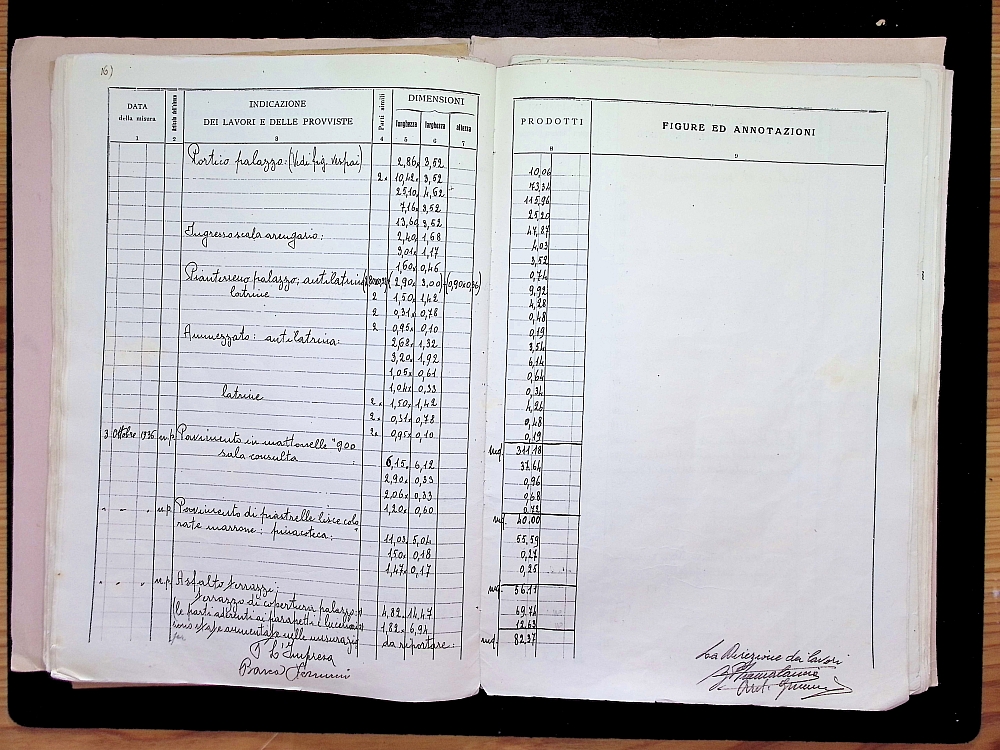 16)
DATA
della misura
INDICAZIONE
DEI LAVORI E DELLE PROVVISTE
Parti simili
DIMENSIONI
lunghezza larghezza altezza
1 2 3 4 5 6 7
Portico palazzo: (Vedi fig. Vespai) 2,86x 3,52
2x 10,42x 3,52
25,10x 4,62
7,16x 3,52
13,60x 3,52
Ingresso scala arengario: 2,40x 1,68
3,01x 1,17
1,60x 0,46
Pianterreno palazzo; antilatrina (2,90x 3,00)
latrine 2 1,50x 1,42
2 0,31x 0,78
2 0,95x 0,10
Ammezzato: antilatrina: 2,68x 1,32
3,20x 1,92
1,05x 0,61
1,04x 0,33
latrine 2x 1,50x 1,42
2x 0,31x 0,78
2x 0,95x 0,10
3 Ottobre 1936 n.p. Pavimento in mattonelle "900
sala consulta 6,15x 6,12
2,90x 0,33
2,06x 0,33
1,20x 0,60
" " " n.p. Pavimento di piastrelle lisce colo=
rate marrone: pinacoteca: 11,03x 5,04
1,50x 0,18
1,47x 0,17
" " " n.p. Asfalto terrazzi:
terrazzo di copertura palazzo:
(le parti aderenti ai parapetti e lucernari 4,82x 14,47
sono state aumentate nelle misurazio 1,82x 6,94
da reportare:
p L'Impresa
PRODOTTI
FIGURE ED ANNOTAZIONI
8 9
10,06
73,34
115,96
25,20
47,87
4,03
3,52
0,74
9,92
4,28
0,48
0,19
3,54
6,14
0,64
0,34
4,26
0,48
0,19
mq. 311,18
37,64
0,96
0,68
0,72
mq. 40,00
55,59
0,27
0,25
mq. 56,11
69,74
12,63
mq. 82,37
La Direzione dei lavori